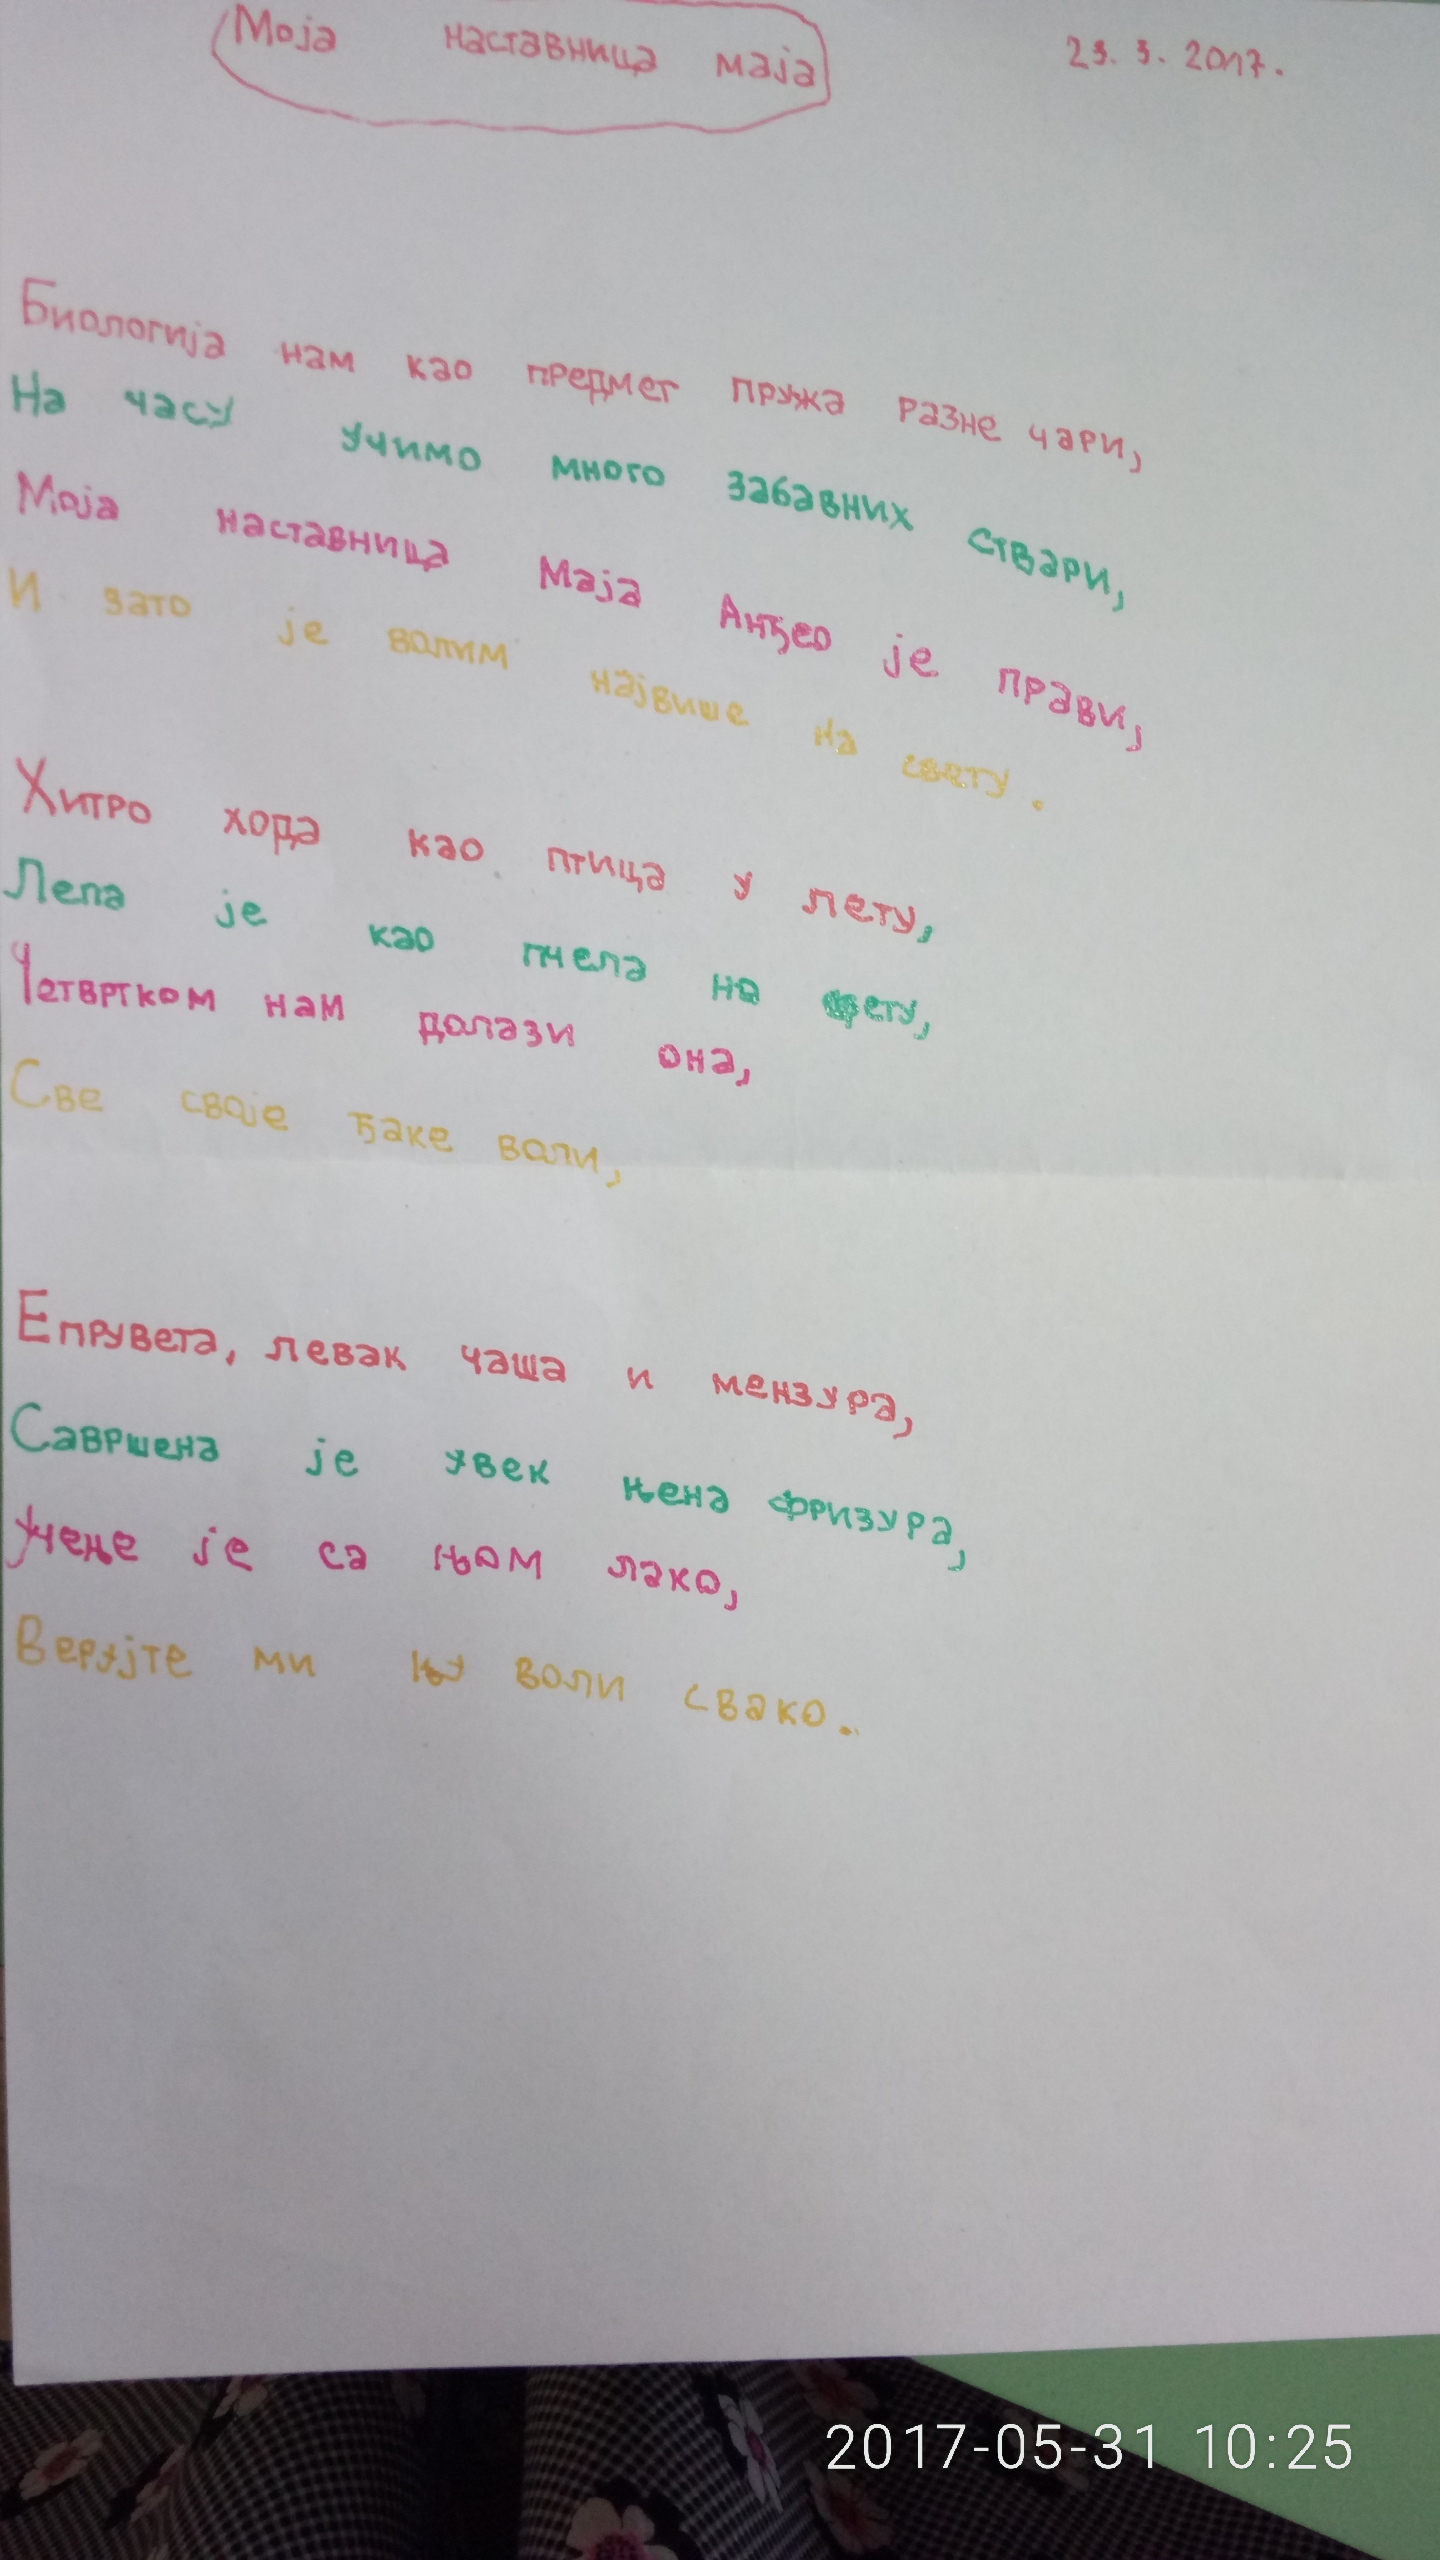 Моја наставница маја
23. 3. 2017.
Биологија нам као предмет пружа разне чари,
На часу учимо много забавних ствари,
Моја наставница Маја Анђео је прави,
И зато је волим највише на свету.
Хитро хода као птица у лету,
Лепа је као пчела на цвету,
Четвртком нам долази она,
Све своје ђаке воли,
Епрувета, левак чаша и мензура,
Савршена је увек њена фризура,
Учење је са њом лако,
Верујте ми њу воли свако.
2017-05-31 10:25